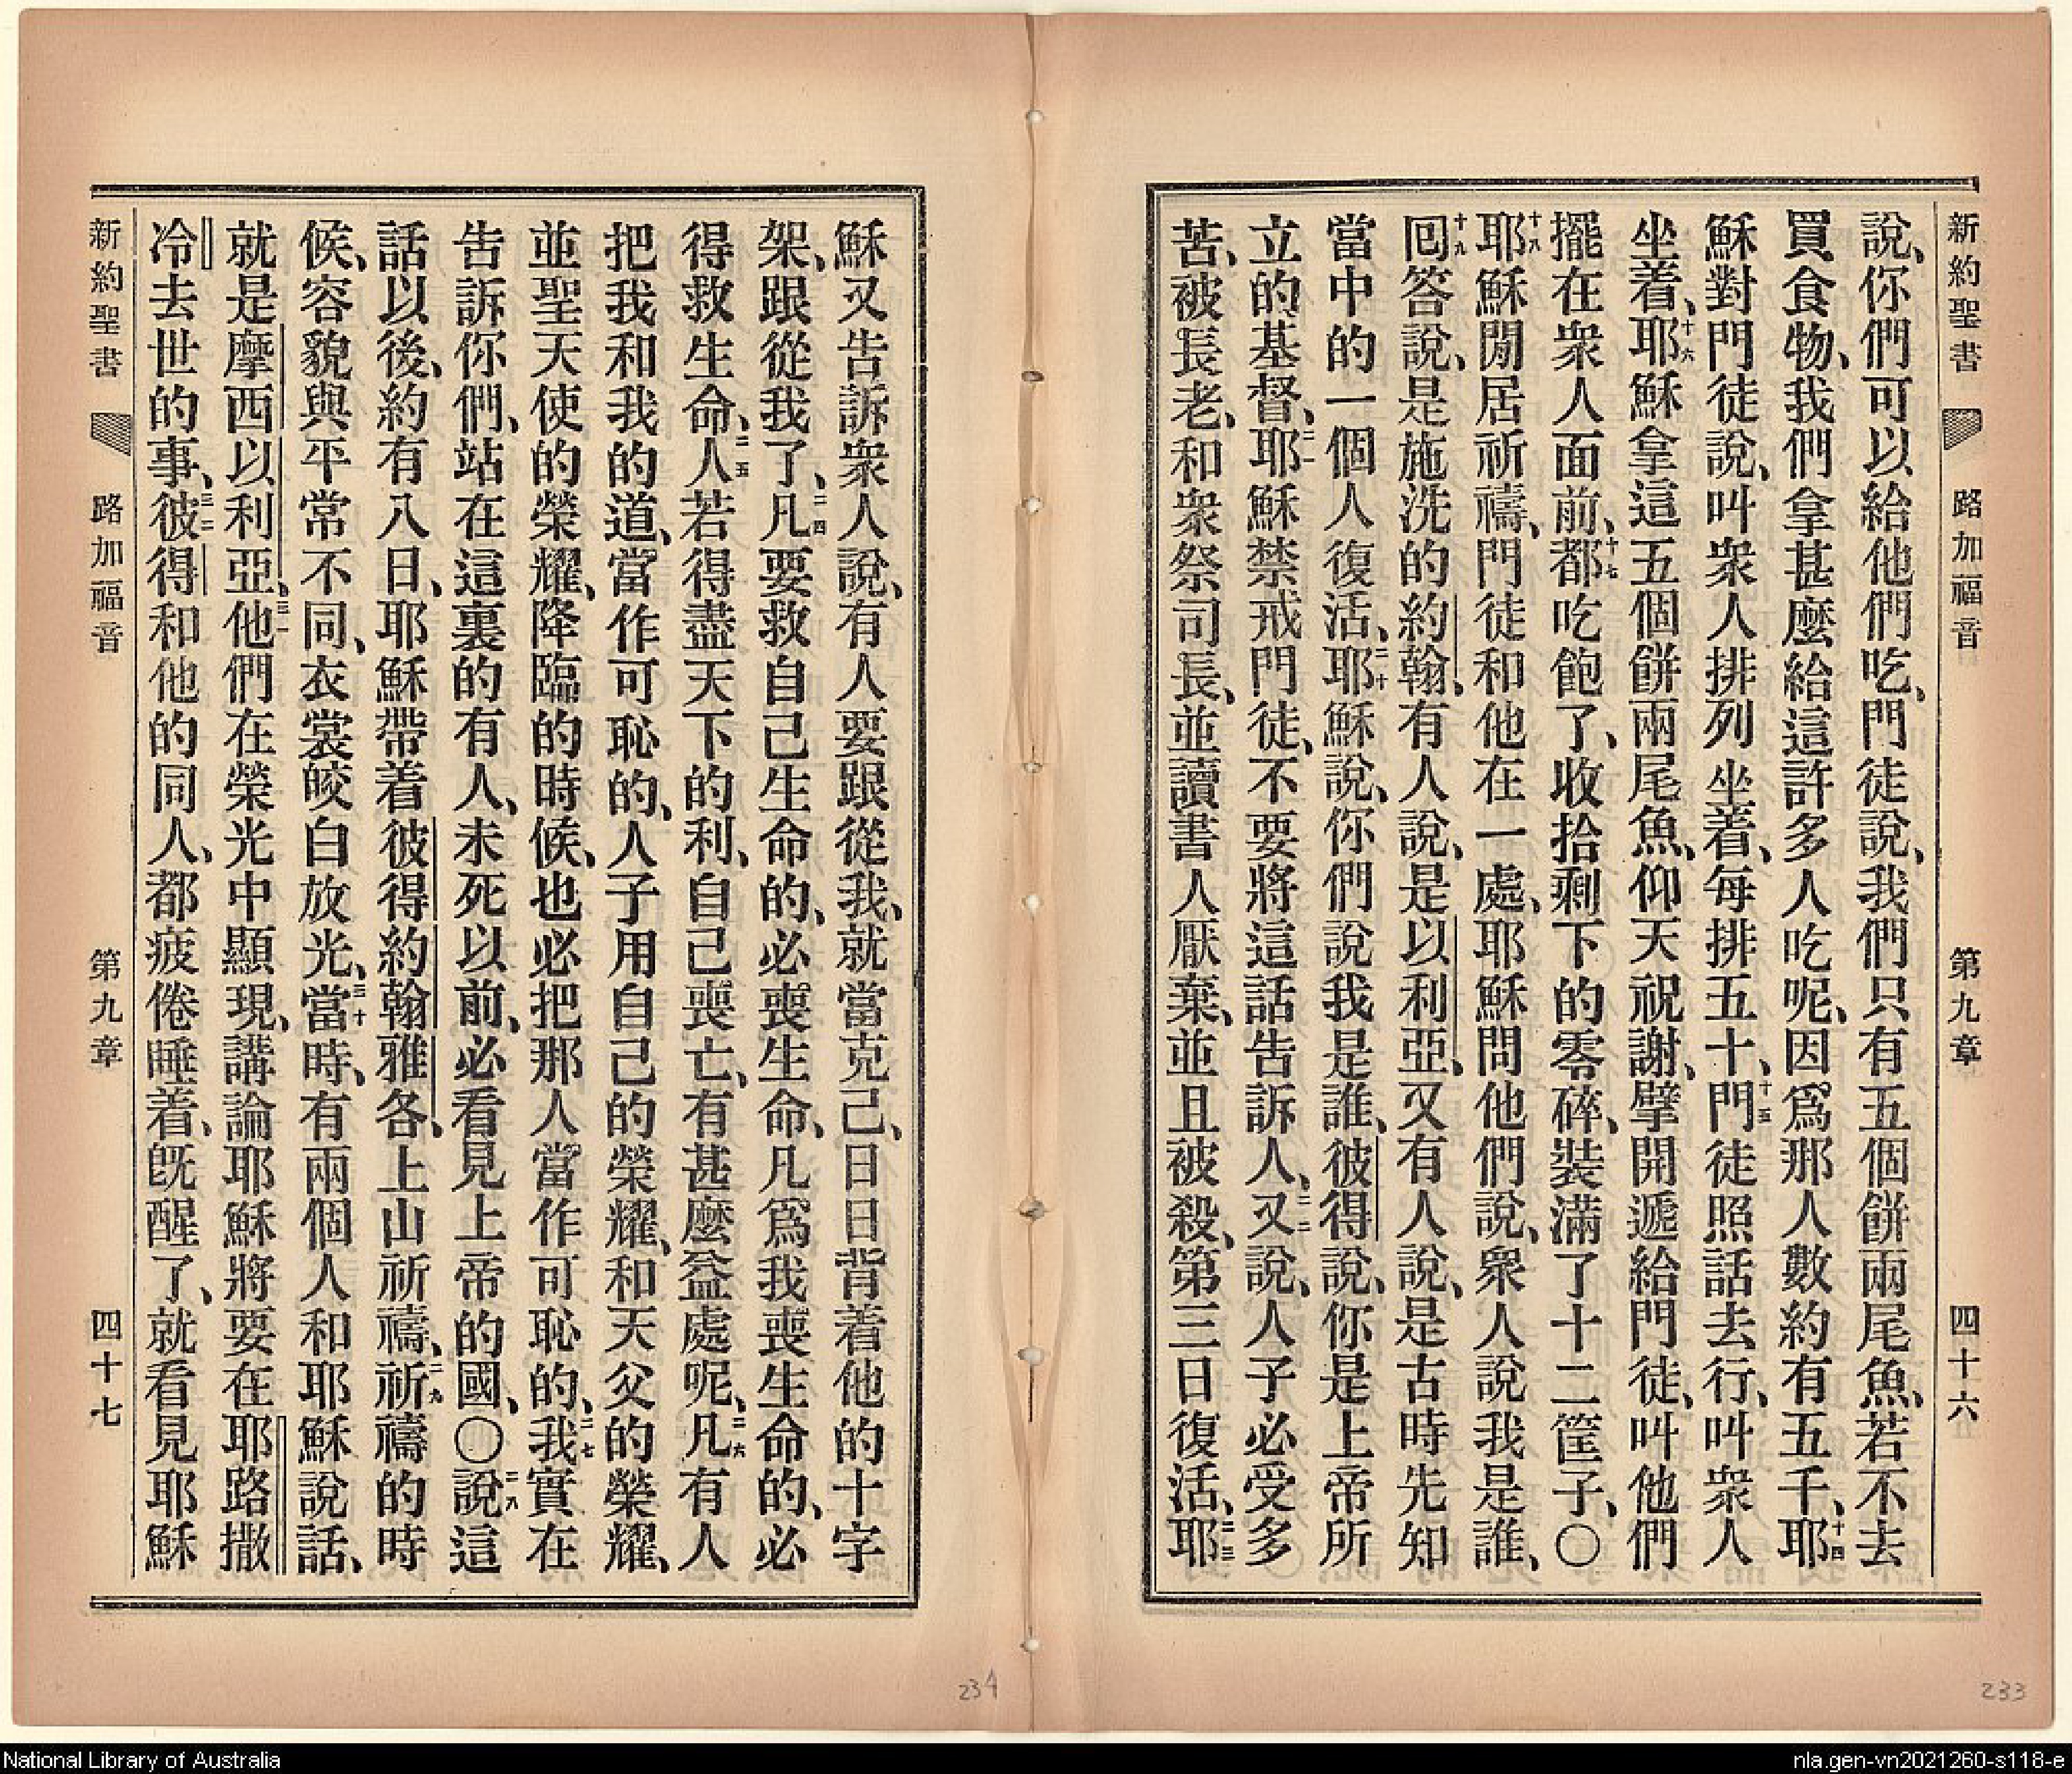 新約聖書 路加福音 第九章 四十六
說、你們可以給他們吃、門徒說、我們只有五個餅兩尾魚、若不去
買食物、我們拿甚麼給這許多人吃呢、因爲那人數約有五千、十四耶
穌對門徒說、叫衆人排列坐着、每排五十、十五門徒照話去行、叫衆人
坐着、十六耶穌拿這五個餅兩尾魚、仰天祝謝、擘開遞給門徒、叫他們
擺在衆人面前、十七都吃飽了、收拾剩下的零碎、裝滿了十二筐子、〇
十八耶穌閒居祈禱、門徒和他在一處、耶穌問他們說、衆人說我是誰、
十九回答說、是施洗的約翰、有人說、是以利亞、又有人說、是古時先知
當中的一個人復活、二十耶穌說、你們說我是誰、彼得說、你是上帝所
立的基督、二一耶穌禁戒門徒、不要將這話告訴人、二二又說、人子必受多
苦、被長老、和衆祭司長、並讀書人厭棄、並且被殺、第三日復活、二三耶
穌又告訴衆人說、有人要跟從我、就當克己、日日背着他的十字
架、跟從我了、二四凡要救自己生命的、必喪生命、凡爲我喪生命的、必
得救生命、二五人若得盡天下的利、自己喪亡、有甚麼益處呢、二六凡有人
把我和我的道、當作可恥的、人子用自己的榮耀、和天父的榮耀、
並聖天使的榮耀、降臨的時候、也必把那人當作可恥的、二七我實在
告訴你們、站在這裏的有人、未死以前、必看見上帝的國、〇二八說這
話以後、約有八日、耶穌帶着彼得約翰雅各、上山祈禱、二九祈禱的時
候、容貌與平常不同、衣裳皎白放光、三十當時、有兩個人和耶穌說話、
就是摩西以利亞、三一他們在榮光中顯現、講論耶穌將要在耶路撒
冷去世的事、三二彼得和他的同人、都疲倦睡着、旣醒了、就看見耶穌
新約聖書 路加福音 第九章 四十七
234
233
National Library of Australia
nla.gen-vn2021260-s118-e